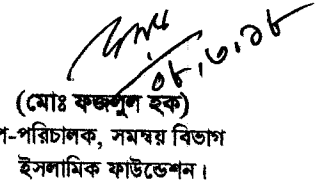 ০৮,৩,১৮
(মোঃ ফজলুল হক)
প-পরিচালক, সমন্বয় বিভাগ
ইসলামিক ফাউন্ডেশন।